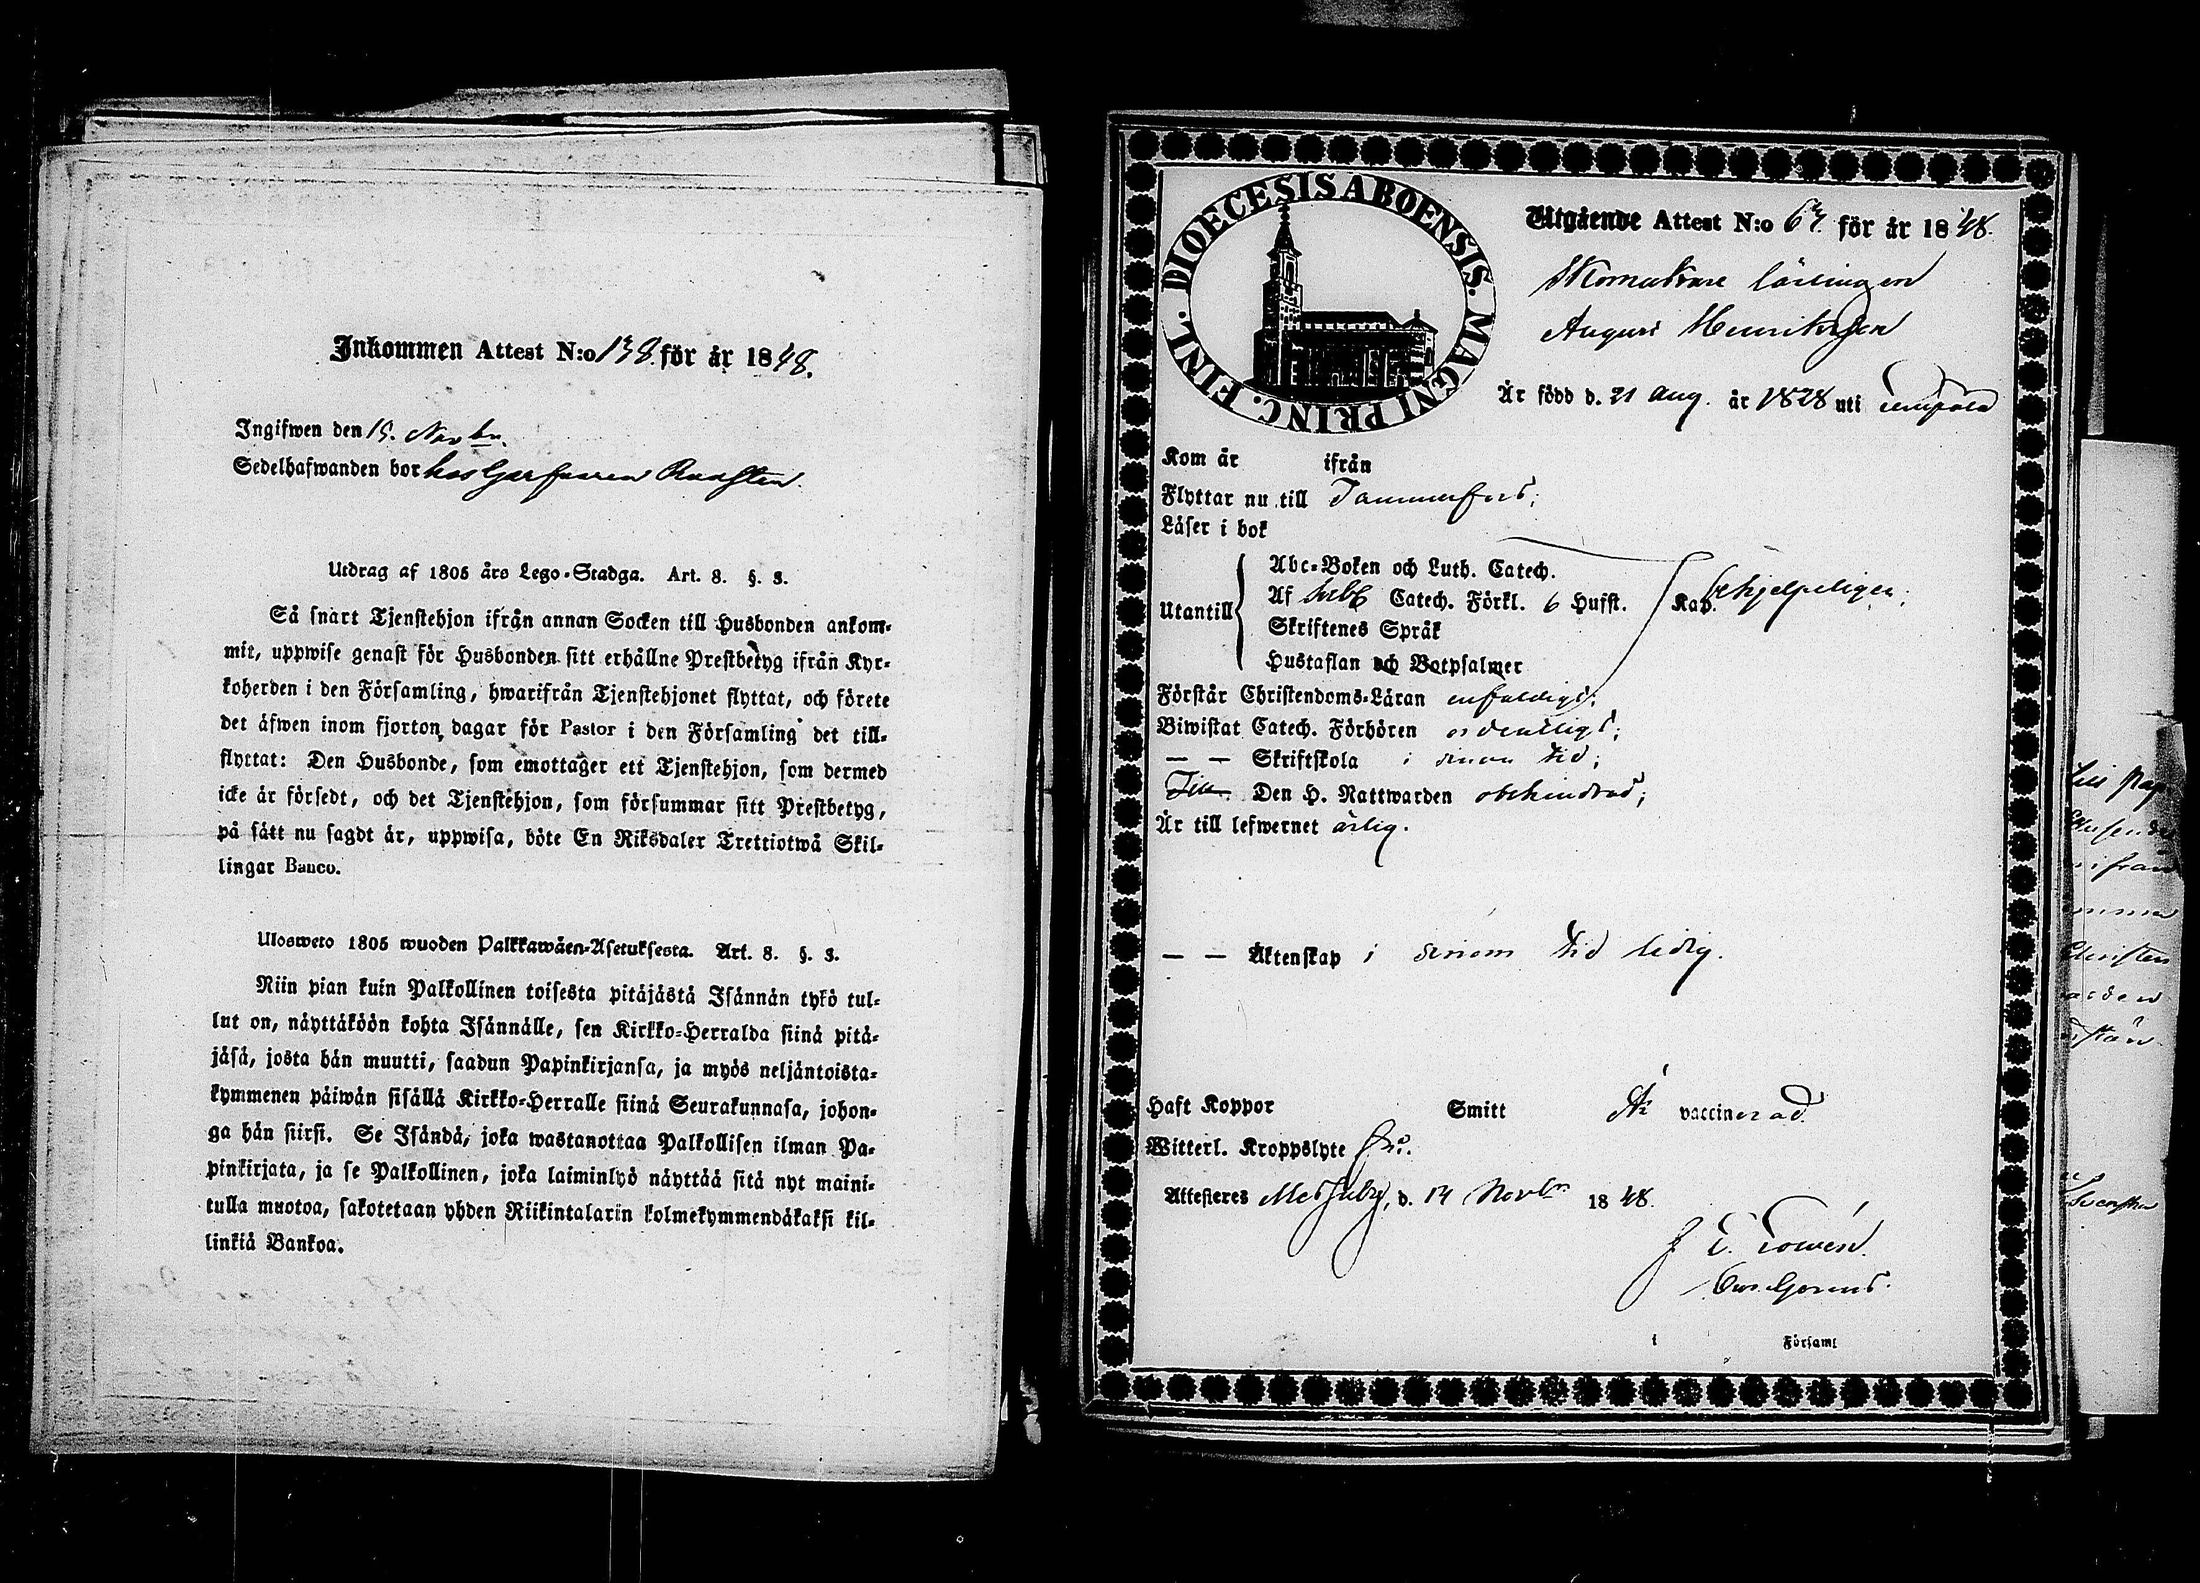 Inkommen Attest N:o 138 för år 1848.
Ingifwen den 15. Novbr.
Sedelhafwanden bor hos Garfvaren
Utdrag af 1805 års Lego-Stadga. Art. 8. §. 3.
Så snart Tjenstehjon ifrån annan Socken till Husbonden ankom-
mit, uppwise genast för Husbonden sitt erhållne Prestbetyg ifrån Kyr-
koherden i den Församling, hwarifrån Tjenstehjonet flyttat, och förete
det äfwen inom fjorton dagar för Pastor i den Församling det till-
flyttat: Den Husbonde, som emottager ett Tjenstehjon, som dermed
icke är försedt, och det Tjenstehjon, som försummar sitt Prestbetyg,
på sätt nu sagdt är, uppwisa, böte En Riksdaler Trettiotwå Skil-
lingar Banco.
Ulosweto 1805 wuoden Palkkawäen-Asetuksesta. Art. 8. §. 3.
Niin pian kuin Palkollinen toisesta pitäjästä Isännän tykö tul-
lut on, näyttäköön kohta Isännälle, sen Kirkko-Herralda siinä pitä-
jäsä, josta hän muutti, saadun Papinkirjansa, ja myös neljäntoista-
kymmenen päiwän sisällä Kirkko-Herralle siinä Seurakunnasa, johon-
ga hän siirsi. Se Isändä, joka wastanottaa Palkollisen ilman Pa-
pinkirjata, ja se Palkollinen, joka laiminlyö näyttää sitä nyt maini-
tulla muotoa, sakotetaan yhden Riikintalarin kolmekymmendäkaksi kil-
linkiä Bankoa.
DIOECESIS ABOENSIS. MAGNI PRINC. FINL.
Utgående Attest N:o 67 för år 1848.
Skomakare lärlingen
August Henriksson
Är född d. 21 Aug. år 1828 uti
Kom år ifrån
Flyttar nu till Tammerfors;
Läser i bok
Abc-Boken och Luth. Catech.
Utantill Af Catech. Förkl. 6 Hufst. Kap. behjelpeligen;
Skriftenes Språk
Hustaflan och Botpsalmer
Förstår Christendoms-Läran enfaldigt;
Biwistat Catech. Förhören ordentligt;
— — Skriftskola i sinom tid;
Till Den H. Nattwarden obehindrad;
Är till lefwernet ärlig.
— — Äktenskap i sinom tid ledig.
Haft Koppor Smitt Är vaccinerad
Witterl. Kroppslyte fri.
Attesteras Messuby, d. 14 Novbr 1848.
J E.
i Församl